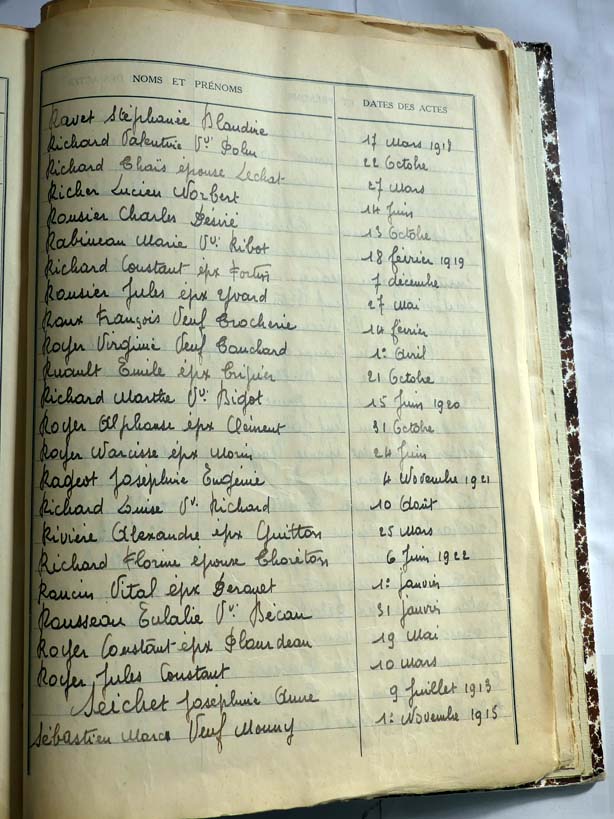 NOMS ET PRÉNOMS DATES DES ACTES
Ravet Stéphanie Blandine 17 Mars 1918
Richard Valentine Vve Dolu 22 Octobre
Richard Thaïs épouse Lechat 27 Mars
Richer Lucien Norbert 14 Juin
Rousier Charles Désiré 13 Octobre
Rabineau Marie Vve Ribot 18 février 1919
Richard Constant épx Fortin 7 décembre
Rousier Jules épx Yvard 27 Mai
Roux François Veuf Crocherie 14 février
Royer Virginie Veuf Couchard 1er Avril
Ruault Emile épx 21 Octobre
Richard Marthe Vve Bigot 15 Juin 1920
Royer Alphonse épx Clément 31 Octobre
Royer Narcisse épx Morin 24 Juin
Rageot Joséphine Eugénie 4 Novembre 1921
Richard Louise Vve Richard 10 Août
Rivière Alexandre épx Guitton 25 Mars
Richard Florine épouse Choreton 6 Juin 1922
Rancin Vital épx Derouet 1er Janvier
Rousseau Eulalie Vve Bécan 31 Janvier
Royer Constant épx Plourdeau 19 Mai
Royer Jules Constant 10 Mars
Seichet Joséphine Anne 9 Juillet 1913
Sébastien Marc Veuf Mouny 1er Novembre 1915